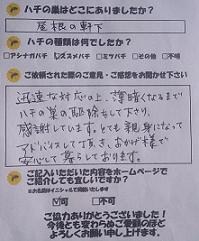 ハチの巣はどこにありましたか?
屋根の軒下
ハチの種類は何でしたか?
□アシナガバチ ☑スズメバチ □ミツバチ □その他 □不明
ご依頼された際のご意見・ご感想をお聞かせ下さい
迅速な対応の上、薄暗くなるまで
ハチの巣の駆除をして下さり、
感謝しています。とても親身になって
アドバイスして頂き、おかげ様で
安心して暮らしております。
ご記入いただいた内容をホームページで
ご紹介しても宜しいですか?
※お名前はイニシャルで掲載いたします
☑可 □不可
ご協力ありがとうございました!
今後とも変わらぬご愛顧のほど
よろしくお願い申し上げます。